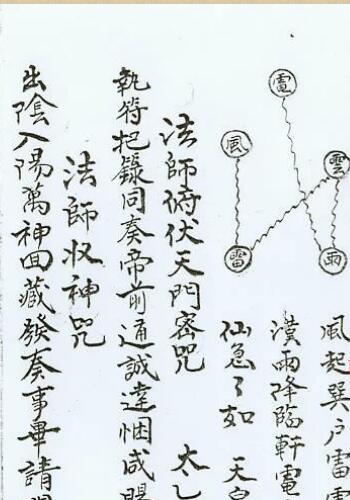 電
雲
風
雨
雷
風起巽戶雷
漢雨降臨軒電
仙急々如 天
法師俯伏天門密咒 太乙
執符把籙同奏帝前通誠達悃咸
法師收神咒
出陰入陽萬神回藏發奏事畢請